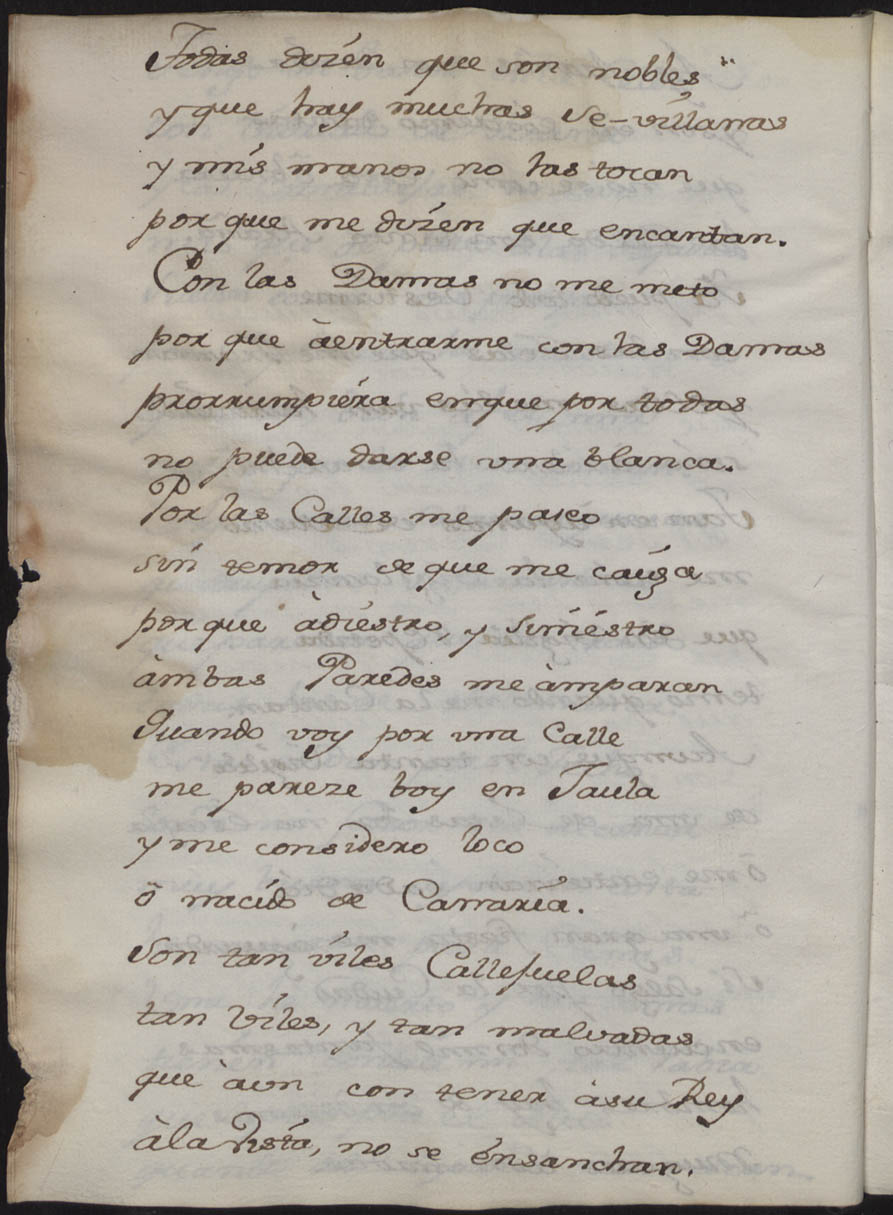 Todas dizen que son nobles
y que hay muchas Se-villanas
y mis manos no las tocan
por que me dizen que encantan.
Con las Damas no me meto
por que àentrarme con las Damas
prorrumpiéra enque por todas
no puede darse una blanca.
Por las Calles me paseo
sin temor de que me caiga
por que àdiestro, y siniéstro
àmbas Paredes me àmparan
Quando voy por una Calle
me pareze boy en Jaula
y me considero loco
ò nacido de Canaria.
Son tan viles Callejuelas
tan viles, y tan malvadas
que àun con tener àsu Rey
àla Vista, no se énsanchan.